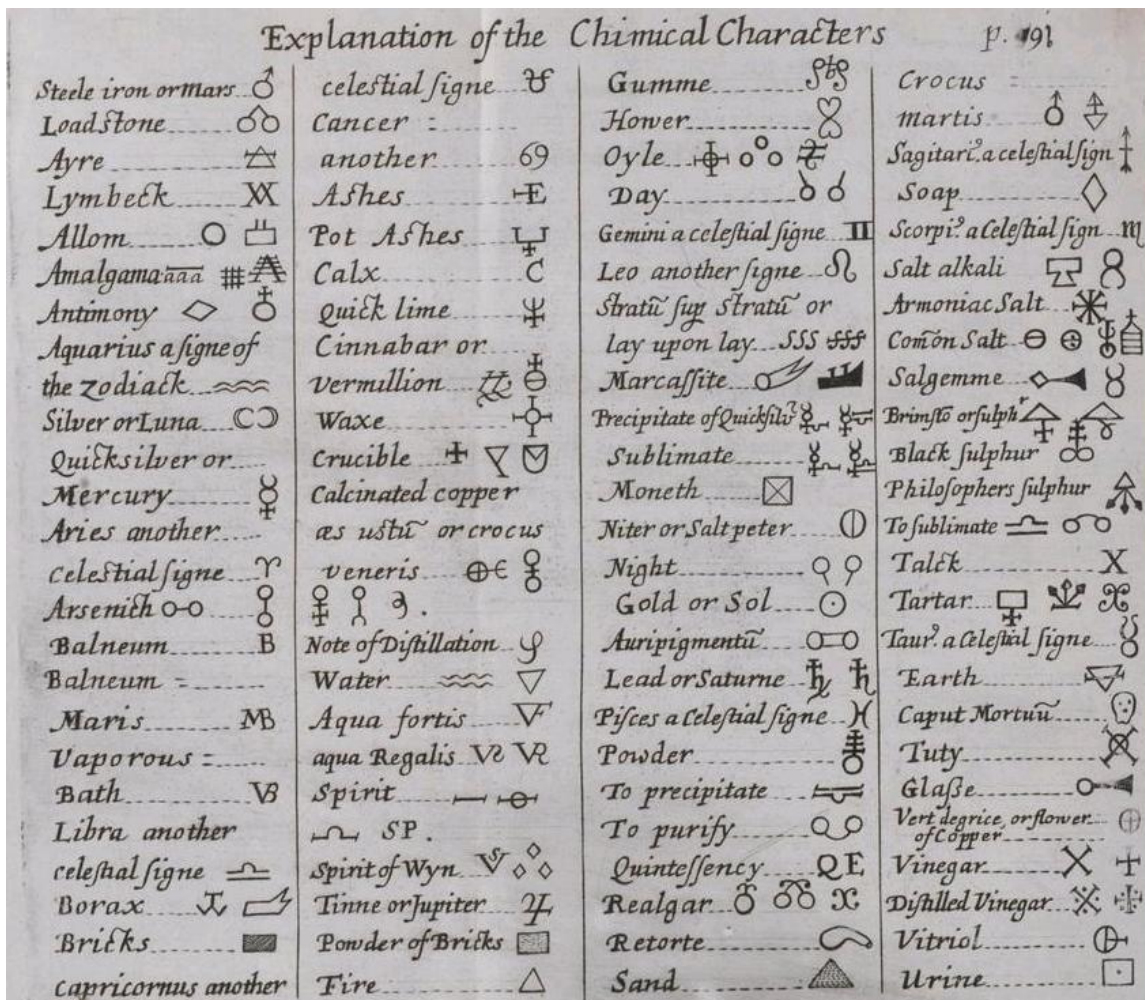 Explanation of the Chimical Characters p. 191
Steele iron or mars
Loadstone
Ayre
Lymbeck
Allom
Amalgama aaa
Antimony
Aquarius a ſigne of
the zodiack
Silver or Luna
Quickſilver or
Mercury
Aries another
Celeſtial ſigne
Arsenick
Balneum B
Balneum =
Maris MB
Vaporous =
Bath VB
Libra another
celeſtial ſigne
Borax
Bricks
capricornus another
celeſtial ſigne
Cancer =
another 69
Aſhes
Pot Aſhes
Calx C
Quick lime
Cinnabar or
vermillion
Waxe
Crucible
Calcinated copper
æs uſtũ or crocus
veneris
Note of Diſtillation
Water
Aqua fortis
aqua Regalis
Spirit
SP.
Spirit of Wyn
Tinne or Jupiter
Powder of Bricks
Fire
Gumme
Hower
Oyle
Day
Gemini a celeſtial ſigne
Leo another ſigne
Stratũ ſup Stratũ or
lay upon lay SSS
Marcaſſite
Precipitate of Quickſilv?
Sublimate
Moneth
Niter or Saltpeter
Night
Gold or Sol
Auripigmentũ
Lead or Saturne
Piſces a Celeſtial ſigne
Powder
To precipitate
To purify
Quinteſſency QE
Realgar
Retorte
Sand
Crocus =
martis
Sagitari? a celeſtial ſign
Soap
Scorpi? a Celeſtial ſign
Salt alkali
Armoniac Salt
Com̃on Salt
Salgemme
Brimſto or ſulphr
Black ſulphur
Philoſophers ſulphur
To ſublimate
Talck X
Tartar
Taur? a Celeſtial ſigne
Earth
Caput Mortuũ
Tuty
Glaſſe
Vert degrice, or flower
of Copper
Vinegar
Diſtilled Vinegar
Vitriol
Urine